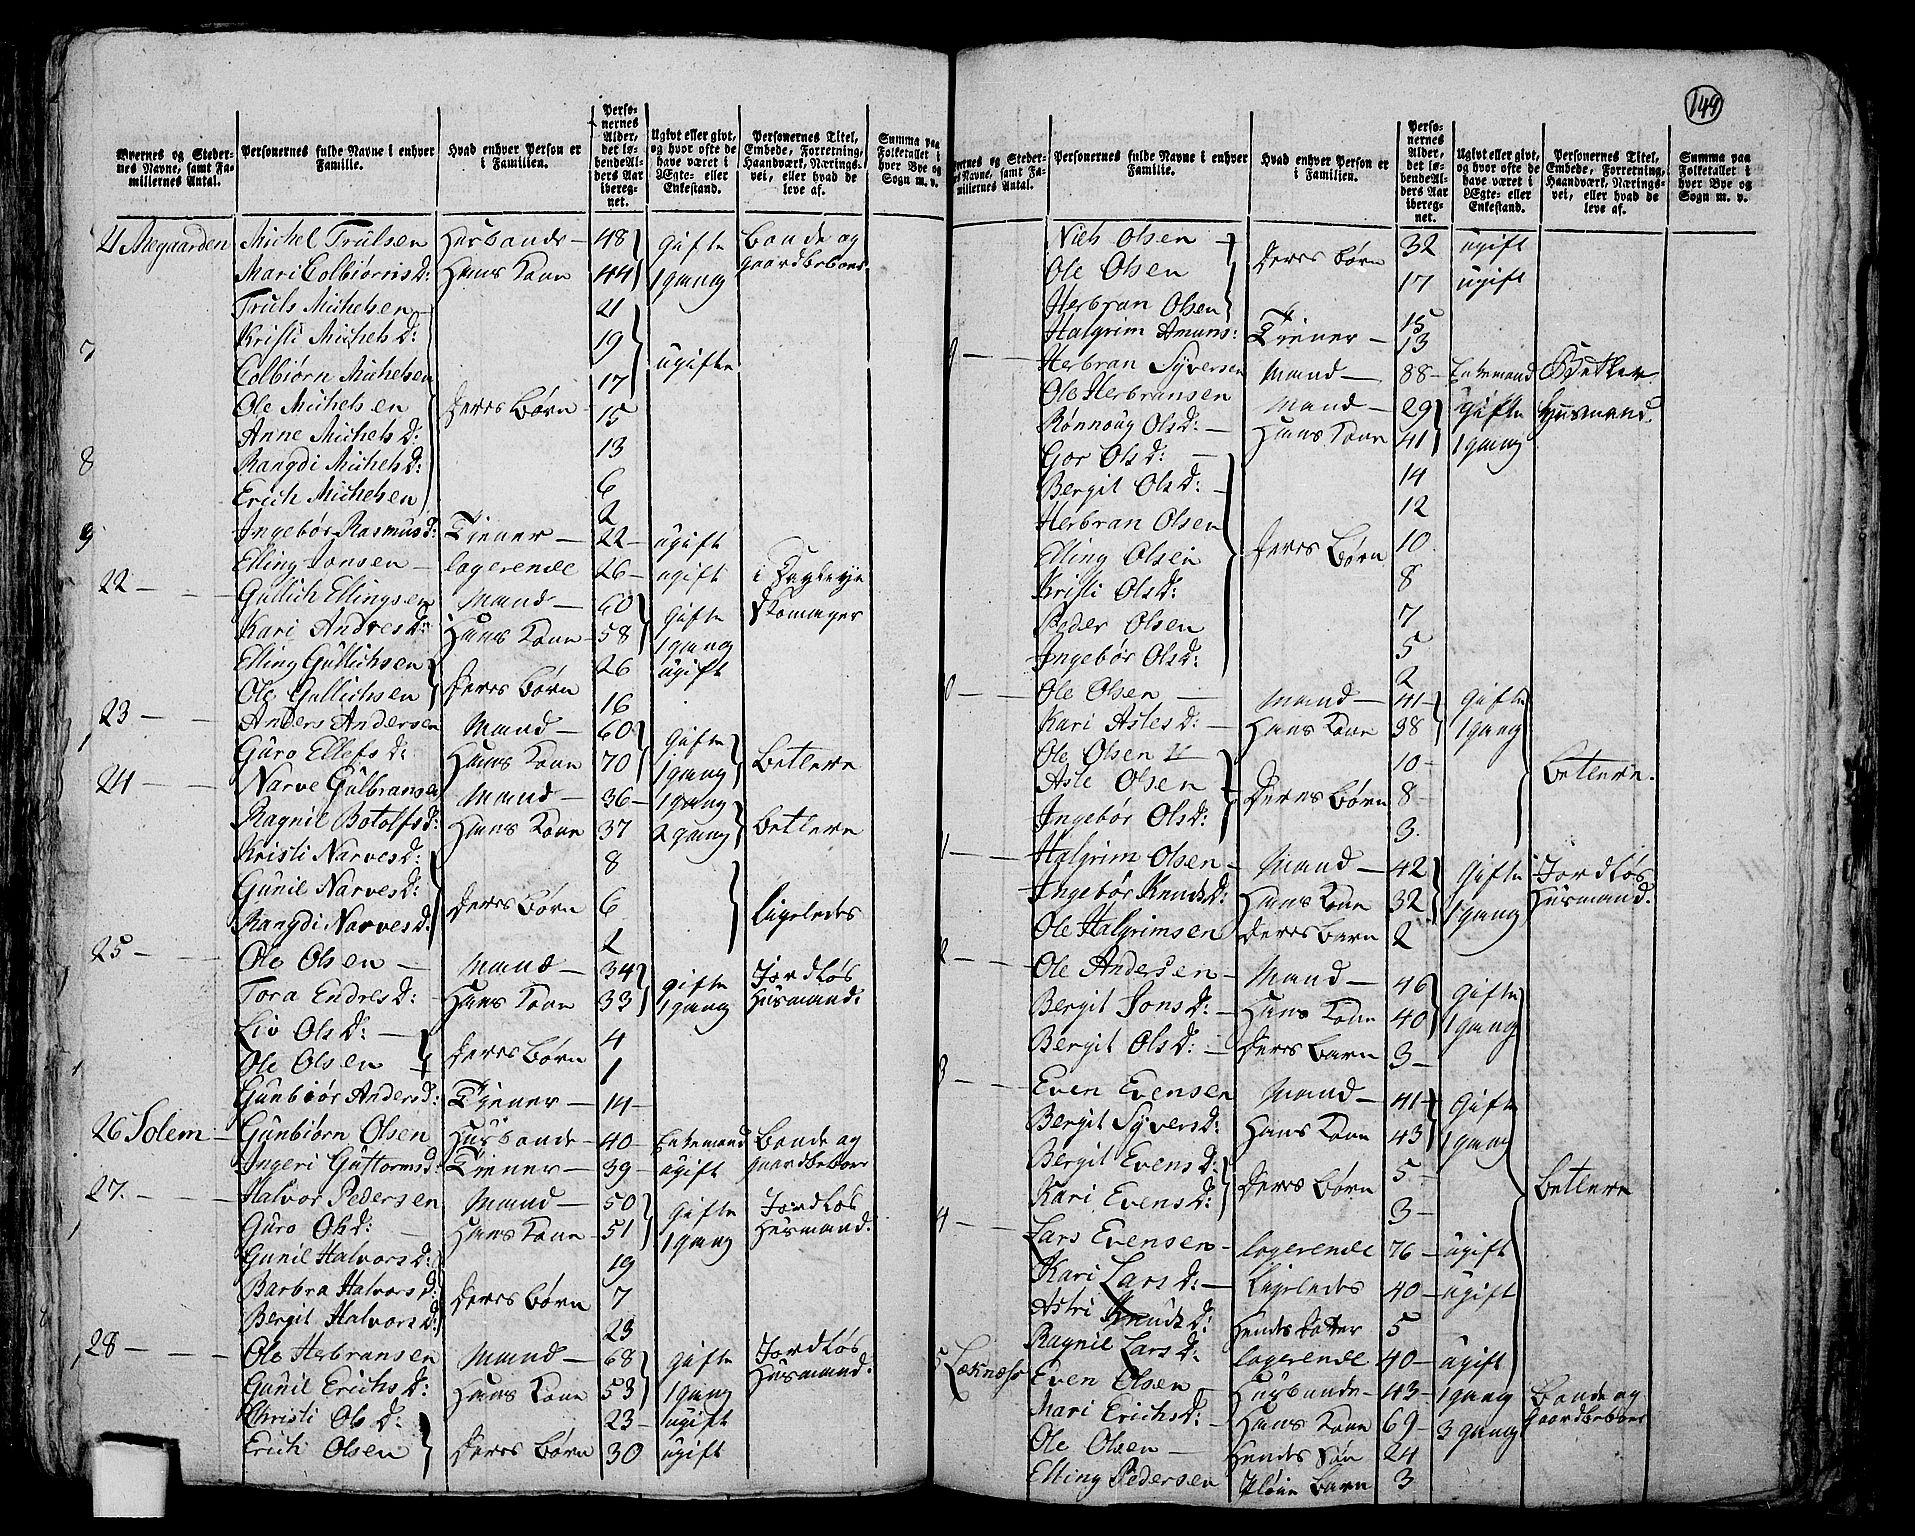 149
Byernes og Steder-
nes Navne, samt Fa-
miliernes Antal.
Personernes fulde Navne i enhver
Familie.
Hvad enhver Person er
i Familien.
Perso-
nernes
Alder,
det lø-
bende Al-
ders Aar
ibereg-
net.
Ugivt eller givt,
og hvor ofte de
have været i
Ægte- eller
Enkestand.
Personernes Titel,
Embede, Forretning,
Haandværk, Nærings-
vei, eller hvad de
leve af.
Summa paa
Folketallet i
hver Bye og
Sogn m. v.
Michel Trulsen Husbonde 48 gifte Bonde og
Mari Colbiørnsd: Hans Kone 44 1 gang gaardbeboer
Truls Michelsen 21
Kristi Michelsd: 19
7 ugifte
Colbiørn Michelsen 17
Ole Michelsen Deres Børn 15
Anne Michelsd: 13
8 Rangdi Michelsd: 6
Erich Michelsen 2
9 Ingebør Rasmusd: Tiener 22 ugift
Elling Jonsen logerende 26 ugift i
22 Gullich Ellingsen Mand 60 gifte Skomager
Kari Andresd: Hans Kone 58 1 gang
Elling Gullichsen 26 ugift
Ole Gullichsen Deres Børn 16
23 Anders Andersen Mand 60 gifte
Guro Ellefsd: Hans Kone 70 1 gang Betlere
24 Narve Gulbransen Mand 36 1 gang
Ragnil Botolfsd: Hans Kone 37 2 gang Betlere
Kristi Narvesd: 8
Gunil Narvesd: Deres Børn 6 Ligeledes
Rangdi Narvesd: 2
25 Ole Olsen Mand 34 gifte Jordløs
Tora Endresd: Hans Kone 33 1 gang Husmand
Liv Olsd: 4
Ole Olsen Deres Børn 1
Gunbiør Andersd: Tiener 14
26 Solem Gunbiørn Olsen Husbonde 40 Enkemand Bonde og
Ingeri Guttormsd: Tiener 39 ugift gaardbeboer
27. Halvor Pedersen Mand 50 gifte Jordløs
Guro Olsd: Hans Kone 51 1 gang Husmand:
Gunil Halvorsd: 19
Barbra Halvorsd: Deres Børn 7
Bergit Halvorsd: 23
28 Ole Herbransen Mand 68 gifte Jordløs
Gunil Erichsd: Hans Kone 53 1 gang Husmand:
Christi Olsd: 23 ugift
Erich Olsen Deres Børn 30 ugift
Byernes og Steder-
nes Navne, samt Fa-
miliernes Antal.
Personernes fulde Navne i enhver
Familie.
Hvad enhver Person er
i Familien.
Perso-
nernes
Alder,
det lø-
bende Al-
ders Aar
ibereg-
net.
Ugivt eller givt,
og hvor ofte de
have været i
Ægte- eller
Enkestand.
Personernes Titel,
Embede, Forretning,
Haandværk, Nærings-
vei, eller hvad de
leve af.
Summa paa
Folketallet i
hver Bye og
Sogn m. v.
Niels Olsen 32 ugift
Ole Olsen Deres Børn 17 ugift
Herbran Olsen 15
Halgrim Amuns: Tiener 13
9 Herbran Syversen Mand 88 Enkemand
Ole Herbransen Mand 29 gifte Husmand.
Rønnoug Olsd: Hans Kone 41 1 gang
Gor Olsd: 14
Bergit Olsd: 12
Herbran Olsen 10
Elling Olsen Deres Børn 8
Kristi Olsd: 7
Peder Olsen 5
Ingebør Olsd: 2
0 Ole Olsen Mand 41 gifte
Kari Aslesd: Hans Kone 38 1 gang
Ole Olsen 10
Asle Olsen Deres Børn 8 Betlere.
Ingebør Olsd: 3.
1 Halgrim Olsen Mand 42 gifte Jordløs
Ingebør Knudsd: Hans Kone 32 1 gang Husmand.
Ole Halgrimsen Deres Barn 2
2 Ole Andersen Mand 46 gifte
Bergit Jonsd: Hans Kone 40 1 gang
Bergit Olsd: Deres Barn 3
3 Even Evensen Mand 41 gifte
Bergit Syversd: Hans Kone 43 1 gang
Bergit Evensd: 5
Kari Evensd: Deres Børn 3 Betlere
4 Lars Evensen logerende 76 ugift
Kari Larsd: Ligeledes 40 ugift
Astri Knudsd: Hendes Datter 5
Ragnil Larsd: logerende 40 ugift
5 Even Olsen Husbonde 43 1 gang Bonde og
Mari Erichsd: Hans Kone 69 3 gang Gaardbeboer
Ole Olsen Hendes Søn 24
Elling Pedersen Barn 3